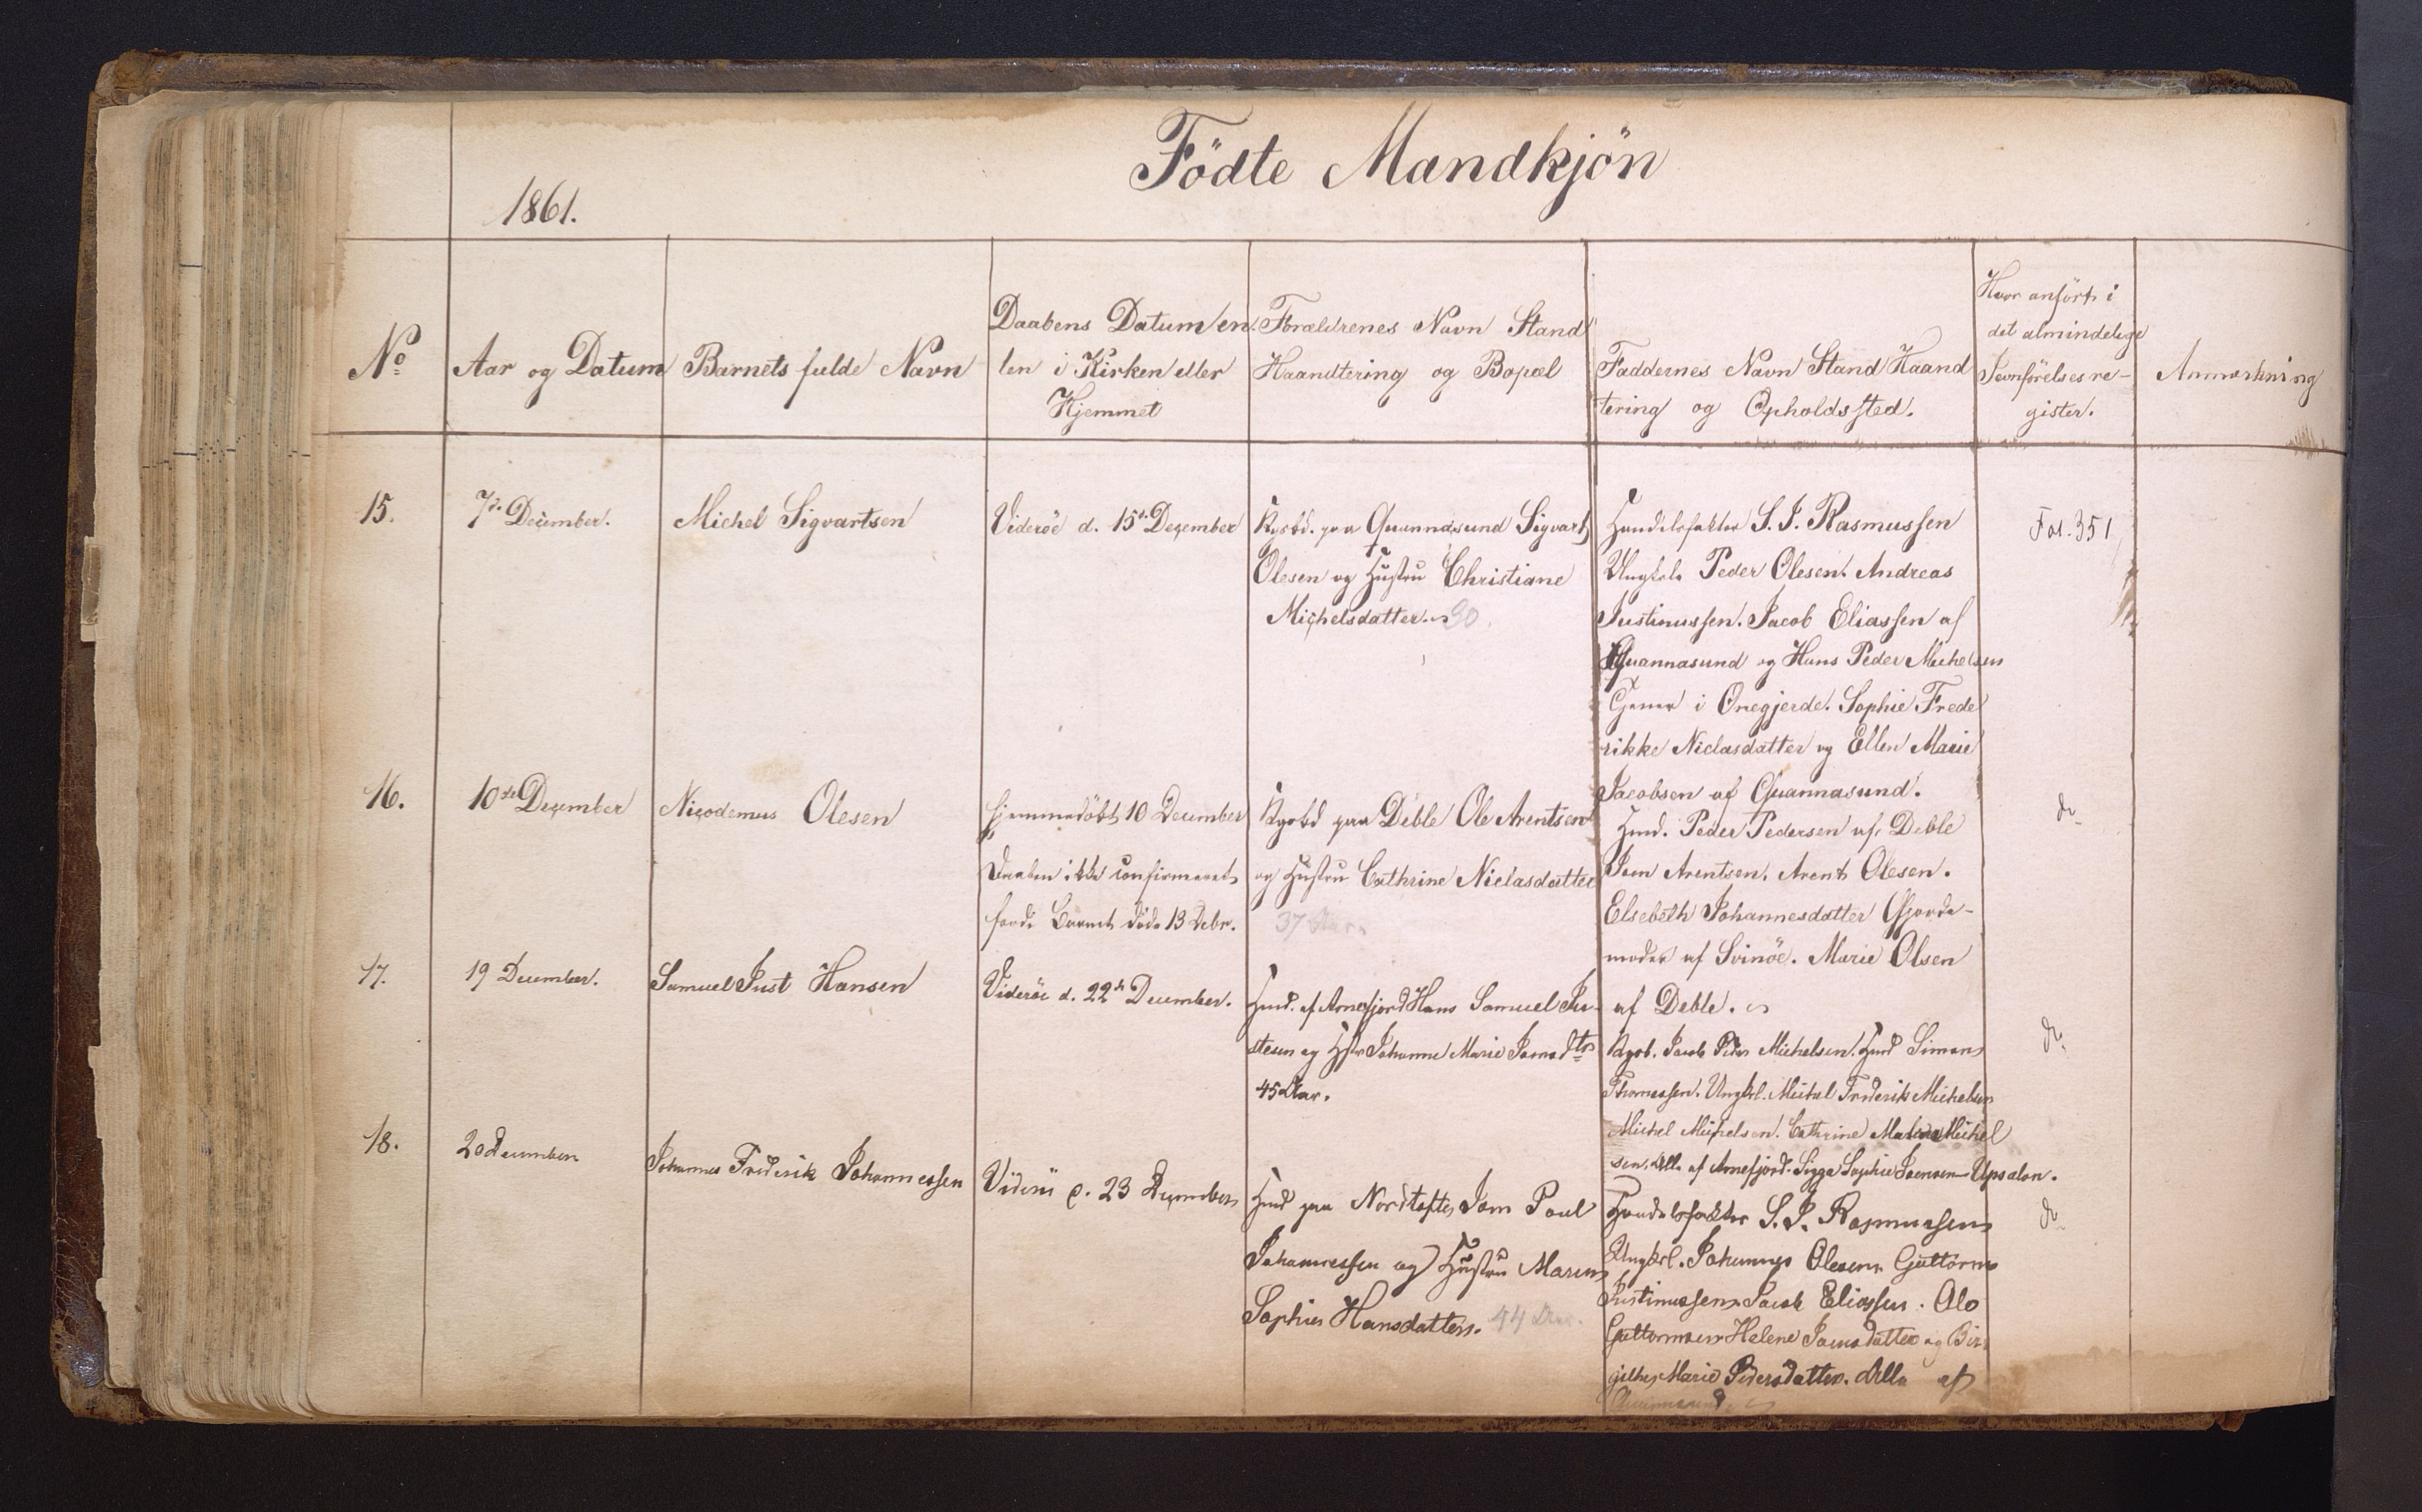 Födte Mandkjön
1861.
No
Aar og Datum
Barnets fulde Navn
Daabens Datum en
ten i Kirken eller
Hjemmet
Forældrenes Navn Stand
Haandtering og Bopæl
Faddernes Navn Stand Haand
tering og Opholdssted.
Hvor anført i
det almindelige
Jevnførelsesre-
gister.
Anmærkning
15.
7de December.
Michel Sigvartsen
Viderøe d. 15de December
Kgsbd. paa Quannasund Sigvart
Olesen og Hustru Christiane
Michelsdatter. 30.
Handelsfaktor S. J. Rasmussen
Ungkrl. Peder Olesen. Andreas
Justinussen. Jacob Eliassen af
Quannasund og Hans Peder Michelsen
i Onegjerde. Sophie Frede
rikke Niclasdatter og Ellen Marie
Jacobsen af Quannasund.
Fol. 351
16.
10de December
Nicodemus Olesen
Hjemmedöbt 10 December
Daaben ikke confirmeret
fordi Barnet døde 13 Debr.
Kgsbd paa Deble Ole Arentsen
og Hustru Cathrine Niclasdatter
37 Aar.
Hmd. Peder Pedersen af Deble
Joen Arentsen. Arent Olesen.
Elsebeth Johannesdatter Gjorde-
moder af Svinöe. Marie Olsen
af Deble.
do
17.
19 December.
Samuel Just Hansen
Viderøe d. 22de December.
Hmd. af Arnefjord Hans Samuel Ju-
stesen og Hstr Johanne Marie Joensdtr
45 Aar.
Kgsb. Jacob Peder Michelsen. Hmd Simon
Thomassen. Ungkrl. Michel Frederik Michelsen
Michel Michelsen. Cathrine Michel
sen, Alle af Arnefjord. Sigga Sophie Joensen Upsalon.
do
18.
20 December
Johannes Frederik Johannessen
Viderøe d. 23 December
Hmd paa Nordtofte Joen Poul
Johannessen og Hustru Maren
Sophie Hansdatter. 44 Aar.
Handelsfaktor S. J. Rasmussen
Ungkrl. Johannes Olesen Guttorm
Justinussen Jacob Eliassen. Olo
Guttormsen Helene Joensdatter og Bir
githe Marie Pedersdatter. Alle af
Quannasund.
do